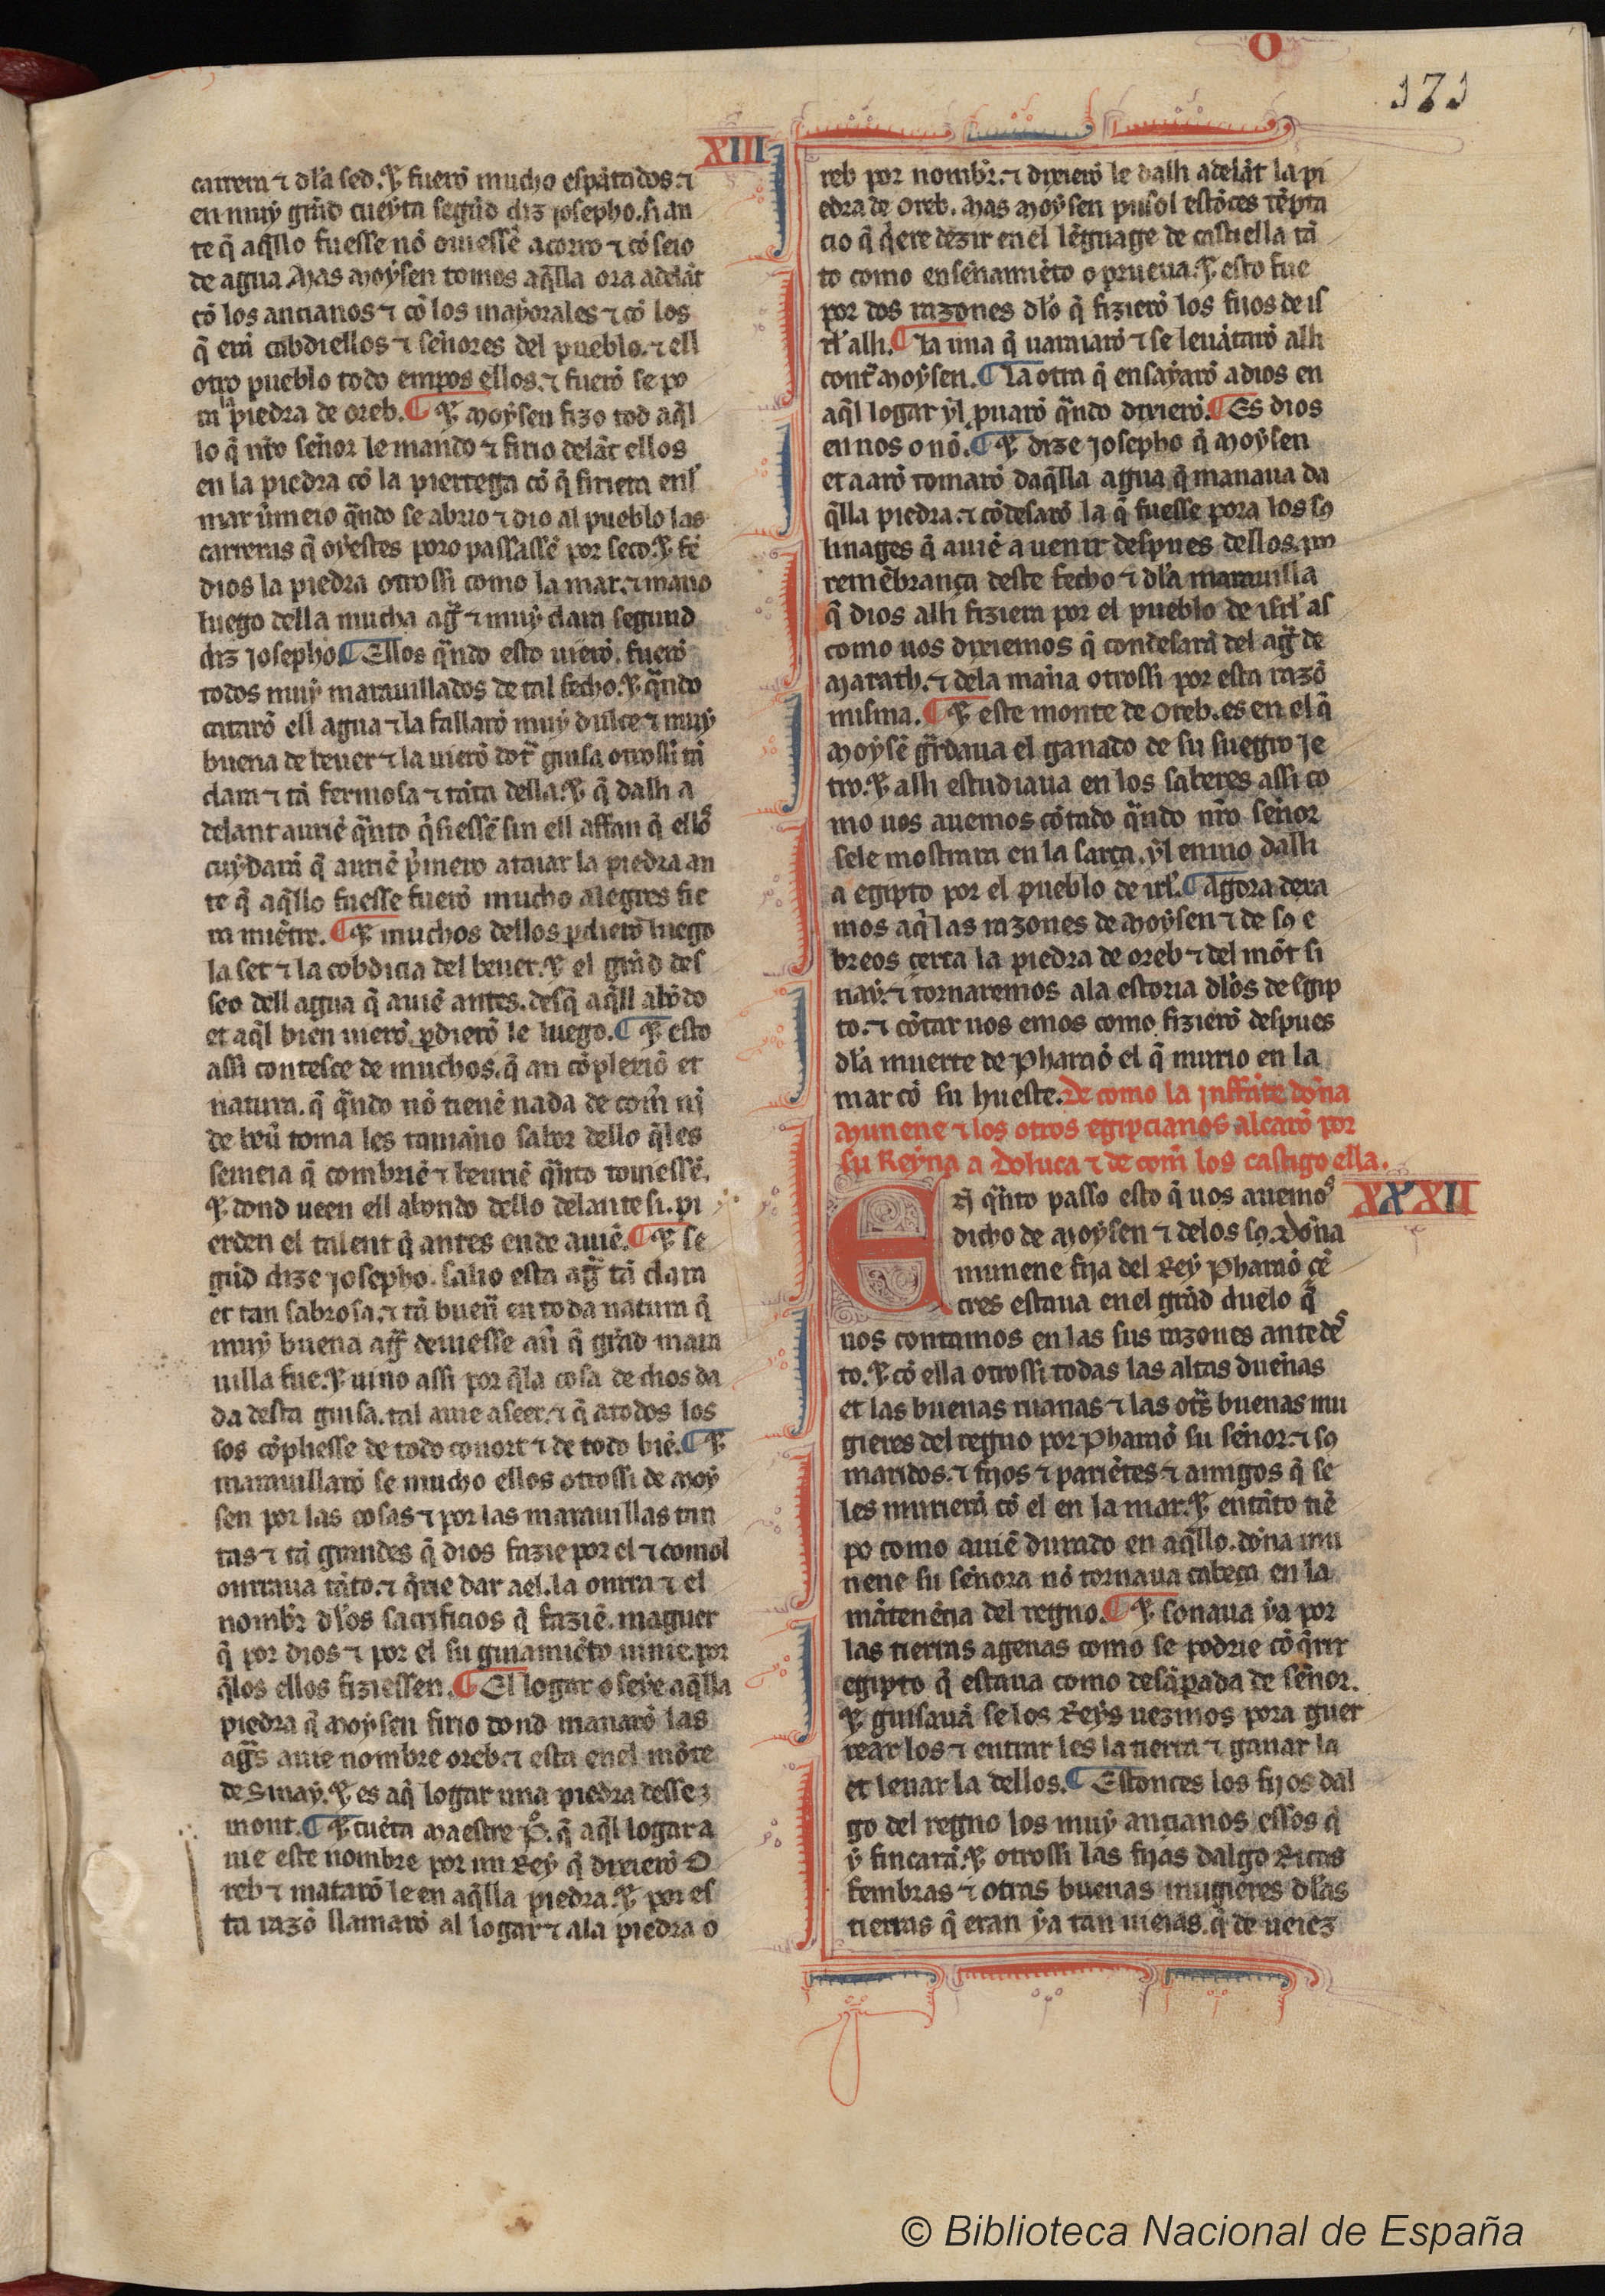 O
171
XIII
carrera ⁊ dla sed. ⁊ fuerõ mucho espãtados. ⁊
en muy grãd cueyta segũd diz josepho. si an
te q̃ aq̃llo fuesse nõ ouiessẽ acorro ⁊ cõseio
de agua Mas Moysen tomos aq̃lla ora adelãt
cõ los ancianos ⁊ cõ los mayorales ⁊ cõ los
q̃ erã cabdiellos ⁊ señores del pueblo. ⁊ ell
otro pueblo todo empos ellos. ⁊ fuerõ se po
ra la piedra de Oreb. ¶ ⁊ Moysen fizo tod aq̃l
lo q̃ nr̃o señor le mando ⁊ firio delãt ellos
en la piedra cõ la piertega cõ q̃ firiera enl
mar uermeio q̃ndo se abrio ⁊ dio al pueblo las
carreras q̃ oyestes poro passassẽ por seco. ⁊ fẽ
dios la piedra otrossi como la mar. ⁊ mano
luego della mucha agũ ⁊ muy clara segund
diz josepho. ¶ Ellos q̃ndo esto uierõ. fuerõ
todos muy marauillados de tal fecho. ⁊ q̃ndo
cataro ell agua ⁊ la fallarõ muy dulce ⁊ muy
buena de beuer ⁊ la uierõ dotr̃ guisa otrossi tã
clara ⁊ tã fermosa ⁊ tãta della. ⁊ q̃ dalli a
delant auriẽ q̃nto q̃siessẽ sin ell affan q̃ ellos
cuydarã q̃ auriẽ p̃mero a taiar la piedra an
te q̃ aq̃llo fuesse fuerõ mucho alegres fie
ra miẽtre. ¶ ⁊ muchos dellos ꝑdierõ luego
la set ⁊ la cobdicia del beuer. ⁊ el grãd des
seo dell agua q̃ auiẽ antes. desq̃ aq̃ll abõdo
et aq̃l bien uierõ. ꝑdierõ le luego. ¶ ⁊ esto
assi contesce de muchos. q̃ an cõplexiõ et
natura. q̃ q̃ndo nõ tienẽ nada de com̃ nj
de beũ toma les tamaño sabor dello q̃les
semeia q̃ combriẽ ⁊ beuriẽ q̃nto touiessẽ.
⁊ dond ueen ell abondo dello delante si. pi
erden el talent q̃ antes ende auiẽ. ¶ ⁊ se
gũd dize josepho. salio esta agũ tã clara
et tan sabrosa. ⁊ tã buenã en toda natura q̃
muy buena agũ deuiesse auer q̃ grãd mara
uilla fue. ⁊ uino assi por q̃ la cosa de dios da
da desta guisa. tal auie a seer. ⁊ q̃ a todos los
sos cõpliesse de todo conort ⁊ de todo biẽ. ¶ ⁊
marauillarõ se mucho ellos otrossi de Moy
sen por las cosas ⁊ por las marauillas tan
tas ⁊ tã grandes q̃ dios fazie por el ⁊ comol
onrraua tãto. ⁊ q̃rie dar a el. la onrra ⁊ el
nombr̃ dlos sacrificios q̃ faziẽ. maguer
q̃ por dios ⁊ por el su guiamiẽto uinie. por
q̃ los ellos fiziessen. ¶ El logar o seye aq̃lla
piedra q̃ Moysen firio dond manarõ las
agũs auie nombre oreb. ⁊ esta en el mõte
de Sinay. ⁊ es aq̃l logar una piedra desse
mont. ¶ ⁊ cuẽta Maestre P̃. q̃ aq̃l logar a
uie este nombre por un Rey q̃ dixierõ O
reb ⁊ matarõ le en aq̃lla piedra. ⁊ por es
ta razõ llamarõ al logar ⁊ a la piedra o
reb por nombr̃. ⁊ dixierõ le dalli adelãt la pi
edra de Oreb. Mas Moysen pusol estõces tẽpta
cio q̃ q̃ere dezir en el lẽguage de castiella tã
to como enseñamiẽto o prueua. ⁊ esto fue
por dos razones dlo q̃ fizierõ los fijos de is
rl alli. ¶ La una q̃ uaraiarõ ⁊ se leuãtarõ alli
contr̃ Moysen. ¶ La otra q̃ ensayarõ a dios en
aq̃l logar yl ꝓuarõ q̃ndo dixierõ. ¶ Es dios
en nos o nõ. ¶ ⁊ dize josepho q̃ Moysen
et aarõ tomarõ daq̃lla agua q̃ manaua da
q̃lla piedra. ⁊ cõdesarõ la q̃ fuesse pora los sos
linages q̃ auiẽ a uenir despues dellos. por
remẽbrança deste fecho ⁊ dla marauilla
q̃ dios alli fiziera por el pueblo de isrl as
como uos dixiemos q̃ condesarã del agũ de
Marath. ⁊ dela manna otrossi por esta razõ
misma. ¶ ⁊ este monte de Oreb. es en el q̃
Moysẽ gr̃daua el ganado de su suegro Je
tro. ⁊ alli estudiaua en los saberes assi co
mo uos auemos cõtado q̃ndo nr̃o señor
sele mostrara en la sarça. yl enuio dalli
a egipto por el pueblo de irl. ¶ Agora dexa
mos aq̃ las razones de Moysen ⁊ de sos e
breos çerca la piedra de oreb ⁊ del mõt si
nay. ⁊ tornaremos ala estoria dlos de Egip
to. ⁊ cõtar uos emos como fizierõ despues
dla muerte de Pharaõ el q̃ murio en la
mar cõ su hueste. De como la jnffãte doña
Munene ⁊ los otros egipcianos alçarõ por
su Reyna a Doluca ⁊ de com̃ los castigo ella.
XXXII
EN q̃nto passo esto q̃ uos auemos
dicho de Moysen ⁊ delos sos. Doña
munene fija del Rey Pharaõ çẽ
cres estaua en el grãd duelo q̃
uos contamos en las sus razones ante des
to. ⁊ cõ ella otrossi todas las altas dueñas
et las buenas uianas ⁊ las otr̃s buenas mu
gieres del regno por Pharaõ su señor. ⁊ sos
maridos. ⁊ fijos ⁊ pariẽtes ⁊ amigos q̃ se
les murierã cõ el en la mar. ⁊ entãto tiẽ
po como auiẽ durado en aq̃llo. doña mu
nene su señora nõ tornaua cabeça en la
mãtenẽcia del regno. ¶ ⁊ sonaua ya por
las tierras agenas como se podrie cõq̃rir
egipto q̃ estaua como desãꝑada de señor.
⁊ guisauã se los Reys uezinos pora guer
rear los ⁊ entrar les la tierra ⁊ ganar la
et leuar la dellos. ¶ Estonces los fijos dal
go del regno los muy ancianos essos q̃
y fincarã. ⁊ otrossi las fijas dalgo Ricas
fembras ⁊ otras buenas mugieres dlas
tierras q̃ eran ya tan uieias. q̃ de ueiez
© Biblioteca Nacional de España